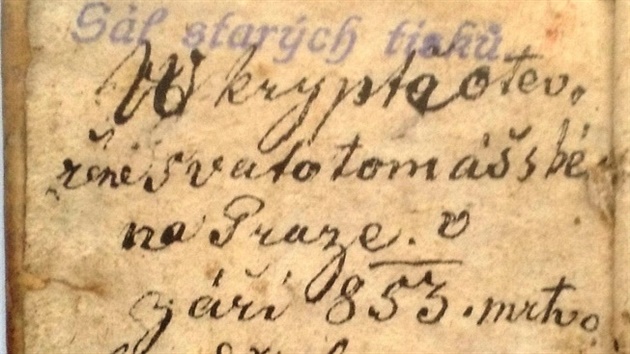 Sál starých tisků
W kryptě otev.
řené svatotomášské
na Praze. v
září 853. mrtvo